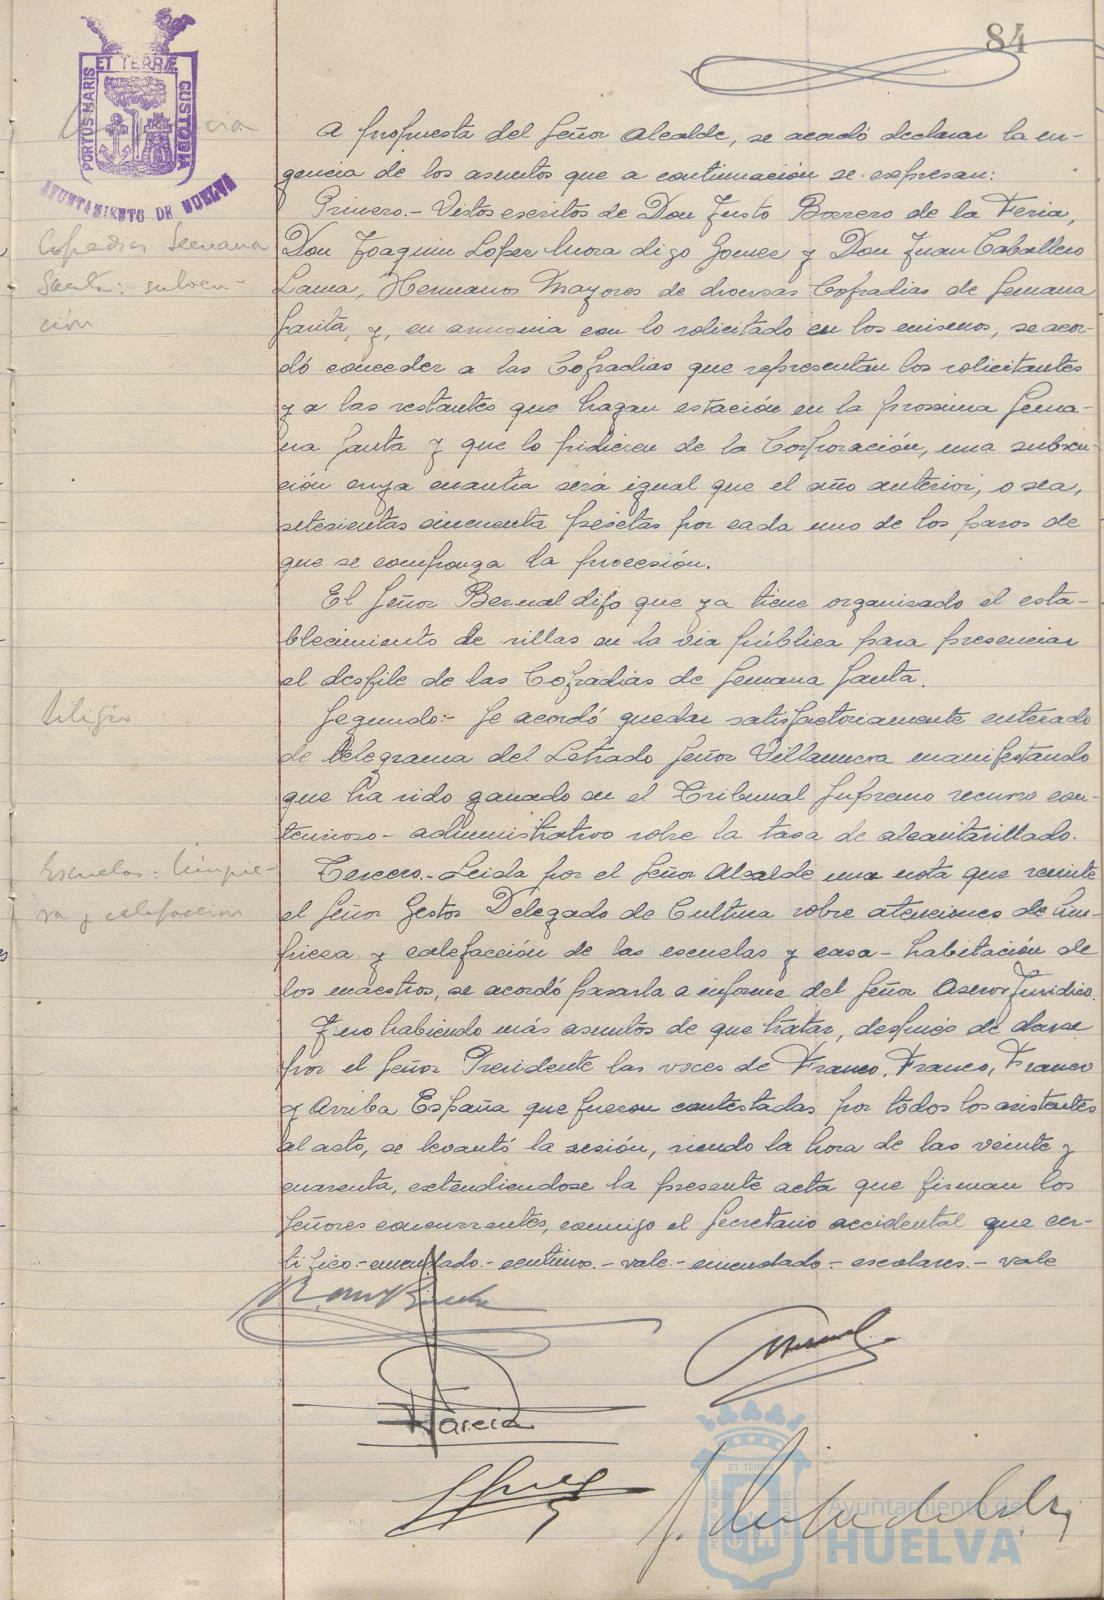 84
PORTUS MARIS ET TERRÆ CUSTODIA
AYUNTAMIENTO DE HUELVA
A propuesta del Señor Alcalde, se acordó declarar la ur-
gencia de los asuntos que a continuación se expresan:
Cofradias Semana
Santa: subven-
ción
Primero.- Vistos escritos de Don Justo Borrero de la Feria,
Don Joaquin Lopez Mora digo Gomez y Don Juan Caballero
Lama, Hermanos Mayores de diversas Cofradias de Semana
Santa, y, en armonia con lo solicitado en los mismos, se acor-
dó conceder a las Cofradias que representan los solicitantes
y a las restantes que hagan estación en la proxima Sema-
na Santa y que lo pidieren de la Corporación, una subven-
ción cuya cuantia será igual que el año anterior, o sea,
setecientas cincuenta pesetas por cada uno de los pasos de
que se componga la procesión.
El Señor Bernal dijo que ya tiene organizado el esta-
blecimiento de sillas en la via pública para presenciar
el desfile de las Cofradias de Semana Santa.
Litigio
Segundo:- Se acordó quedar satisfactoriamente enterado
de telegrama del Letrado Señor Villanueva manifestando
que ha sido ganado en el Tribunal Supremo recurso con-
tencioso-administrativo sobre la tasa de alcantarillado.
Escuelas: limpie-
za y calefaccion
Tercero.- Leida por el Señor Alcalde una nota que remite
el Señor Gestor Delegado de Cultura sobre atenciones de lim-
pieza y calefacción de las escuelas y casa-habitación de
los maestros, se acordó pasarla a informe del Señor Asesor Juridico.
Y no habiendo más asuntos de que tratar, después de darse
por el Señor Presidente las voces de Franco, Franco, Franco
y Arriba España que fueron contestadas por todos los asistentes
al acto, se levantó la sesión, siendo la hora de las veinte y
cuarenta, extendiendose la presente acta que firman los
Señores concurrentes, conmigo el Secretario accidental que cer-
tifico.-enmendado.- centimo.- vale.- enmendado - escolares.- vale
Garcia
Ayuntamiento de
HUELVA